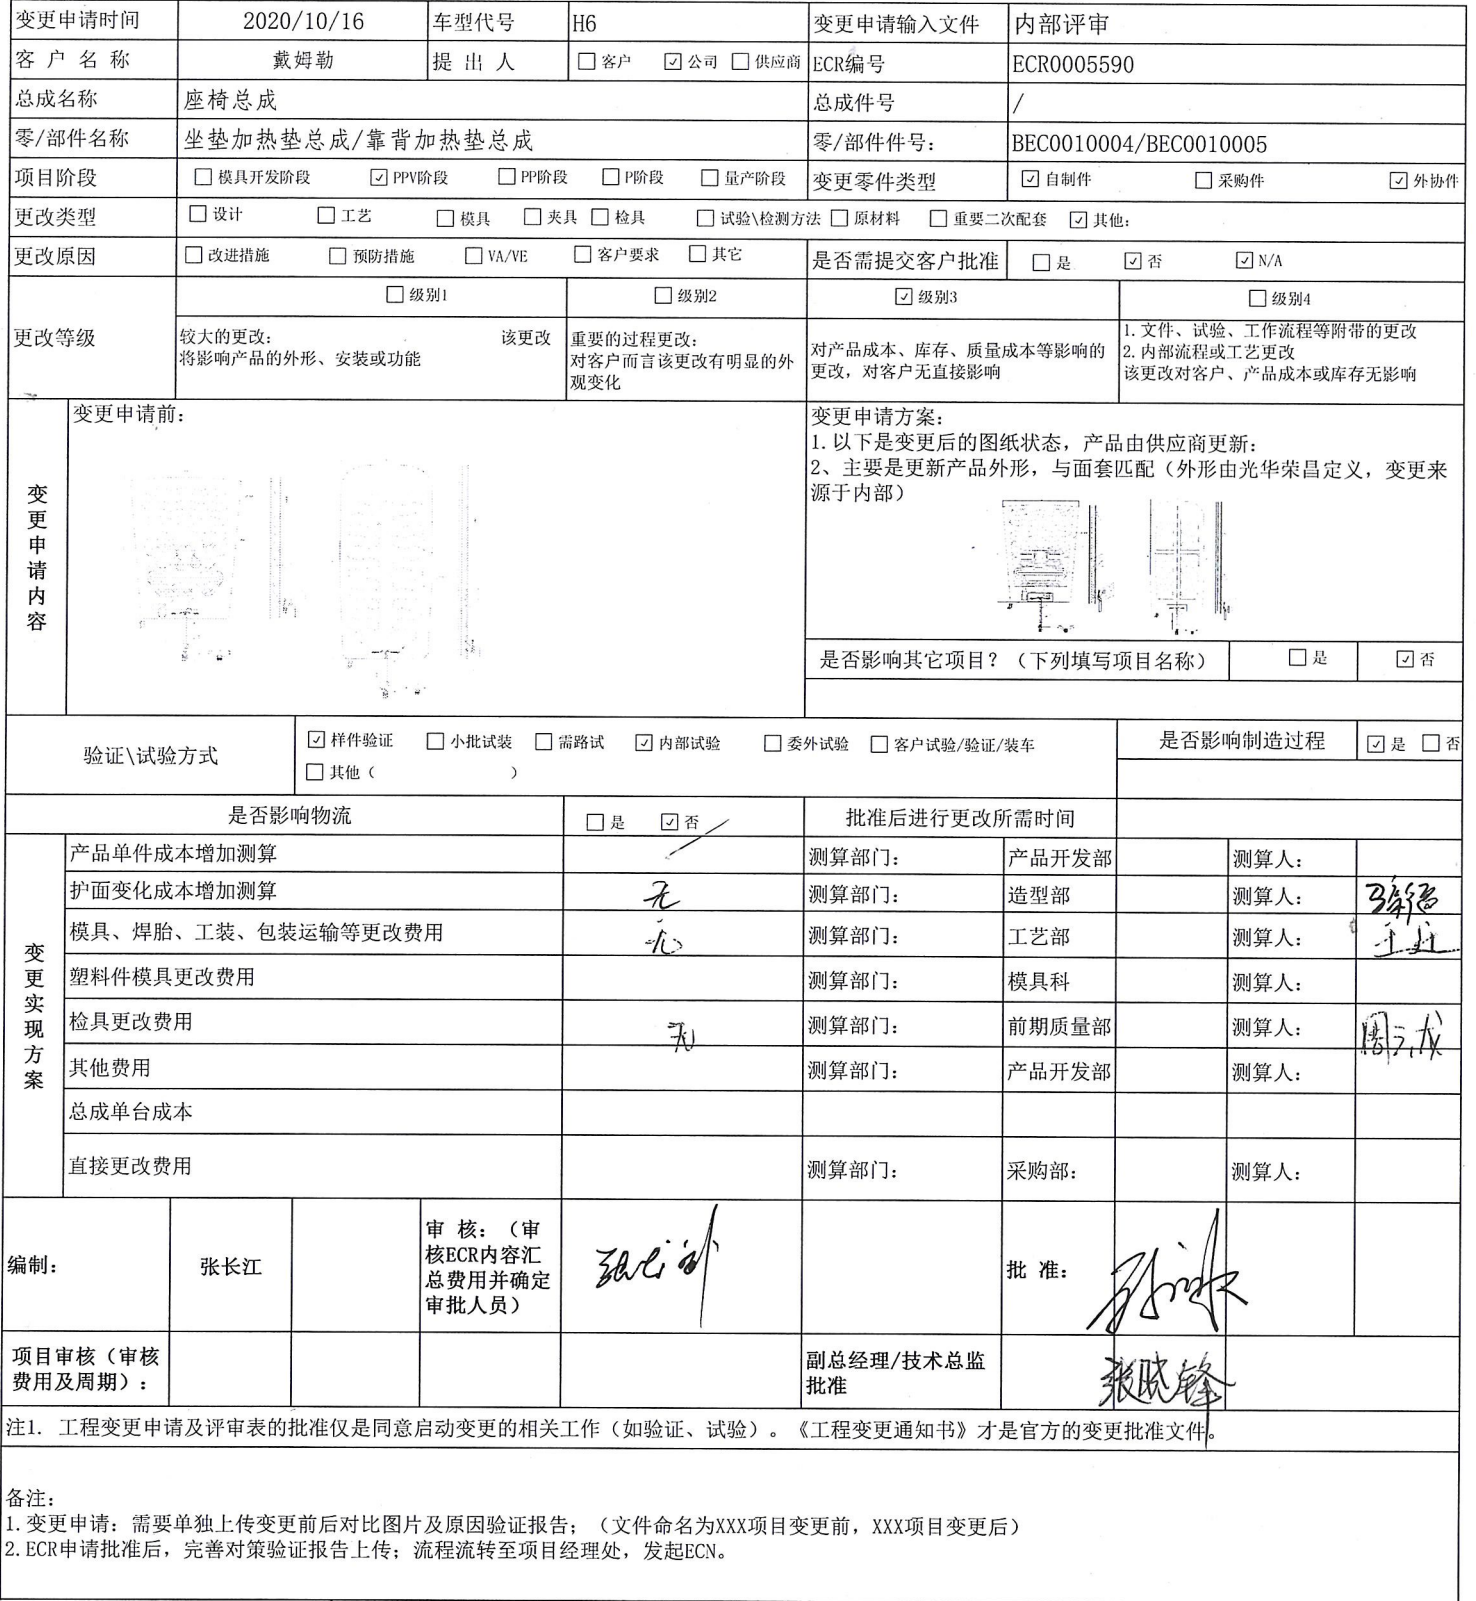 变更申请时间 2020/10/16 车型代号 H6 变更申请输入文件 内部评审
客户名称 戴姆勒 提出人 □客户 ☑公司 □供应商 ECR编号 ECR0005590
总成名称 座椅总成 总成件号 /
零/部件名称 坐垫加热垫总成/靠背加热垫总成 零/部件件号: BEC0010004/BEC0010005
项目阶段 □模具开发阶段 ☑PPV阶段 □PP阶段 □P阶段 □量产阶段 变更零件类型 ☑自制件 □采购件 ☑外协件
更改类型 □设计 □工艺 □模具 □夹具 □检具 □试验\检测方法 □原材料 □重要二次配套 ☑其他:
更改原因 □改进措施 □预防措施 □VA/VE □客户要求 □其它 是否需提交客户批准 □是 ☑否 ☑N/A
更改等级 □级别1 □级别2 ☑级别3 □级别4
较大的更改: 该更改
将影响产品的外形、安装或功能
重要的过程更改:
对客户而言该更改有明显的外
观变化
对产品成本、库存、质量成本等影响的
更改，对客户无直接影响
1.文件、试验、工作流程等附带的更改
2.内部流程或工艺更改
该更改对客户、产品成本或库存无影响
变更申请内容
变更申请前:
变更申请方案:
1.以下是变更后的图纸状态，产品由供应商更新:
2、主要是更新产品外形，与面套匹配（外形由光华荣昌定义，变更来
源于内部）
是否影响其它项目？（下列填写项目名称） □是 ☑否
验证\试验方式 ☑样件验证 □小批试装 □需路试 ☑内部试验 □委外试验 □客户试验/验证/装车
□其他（ ）
是否影响制造过程 ☑是 □否
是否影响物流 □是 ☑否 批准后进行更改所需时间
变更实现方案
产品单件成本增加测算 测算部门: 产品开发部 测算人:
护面变化成本增加测算 无 测算部门: 造型部 测算人:
模具、焊胎、工装、包装运输等更改费用 无 测算部门: 工艺部 测算人:
塑料件模具更改费用 测算部门: 模具科 测算人:
检具更改费用 无 测算部门: 前期质量部 测算人:
其他费用 测算部门: 产品开发部 测算人:
总成单台成本
直接更改费用 测算部门: 采购部: 测算人:
编制: 张长江
审 核:（审
核ECR内容汇
总费用并确定
审批人员）
批 准:
项目审核（审核
费用及周期）:
副总经理/技术总监
批准
张晓锋
注1. 工程变更申请及评审表的批准仅是同意启动变更的相关工作（如验证、试验）。《工程变更通知书》才是官方的变更批准文件。
备注:
1.变更申请: 需要单独上传变更前后对比图片及原因验证报告;（文件命名为XXX项目变更前，XXX项目变更后）
2.ECR申请批准后，完善对策验证报告上传; 流程流转至项目经理处，发起ECN。